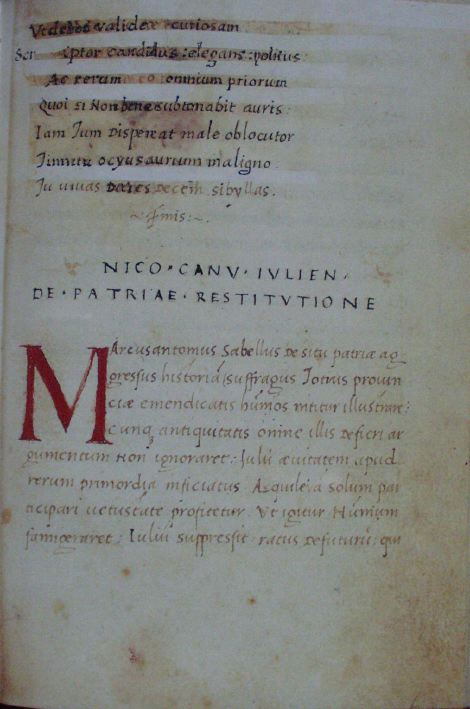 Ut debet valide curiosam
Scriptor candidus: elegans: politus
Ac rerum omnium priorum
Quoi si Non bene subtonabit auris:
Iam Tum Dispereat male oblocutor
Tinnitu ocyus aurium maligno:
Tu vivas Decem sibyllas.
:finis:
NICO · CANV · IVLIEN ·
DE · PATRIAE · RESTITVTIONE
MArcusantonius Sabellus De situ patriæ ag
gressus historiā suffragiis Totius provin
ciæ emendicatis humos nititur illustrare:
cunq antiquitatis omine illis Deficri ar
gumentum Non ignoraret: Iulii ævitatem apud
rerum primordia inficiatus. Aquileia solum par
ticipari vetustate profitetur. Ut igitur Numium
famigeraret: Iulii suppressit ratus Defuturū: qui